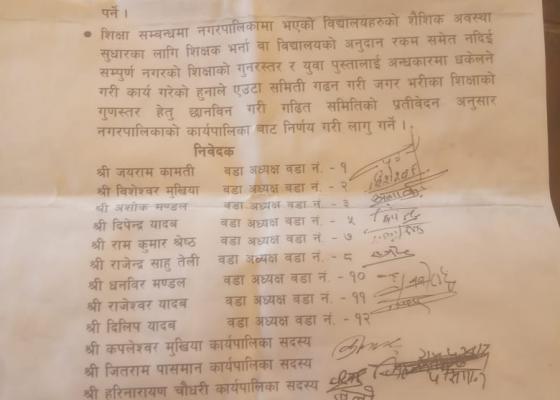 पर्ने ।
• शिक्षा सम्बन्धमा नगरपालिकामा भएको विद्यालयहरुको शैशिक अवस्था
सुधारका लागि शिक्षक भर्ना वा विद्यालयको अनुदान रकम समेत नदिई
सम्पुर्ण नगरको शिक्षाको गुनरस्तर र युवा पुस्तालाई अन्धकारमा धकेलने
गरी कार्य गरेको हुनाले एउटा समिती गढन गरी जगर भरीका शिक्षाको
गुणस्तर हेतु छानविन गरी गढित समितिको प्रतीवेदन अनुसार
नगरपालिकाको कार्यपालिका बाट निर्णय गरी लागु गर्ने ।
निवेदक
श्री जयराम कामती वडा अध्यक्ष वडा नं. - १
श्री विशेश्वर मुखिया वडा अध्यक्ष वडा नं. - २
श्री अशोक मण्डल वडा अध्यक्ष वडा नं. - ३
श्री दिपेन्द्र यादब वडा अध्यक्ष वडा नं. - ५
श्री राम कुमार श्रेष्ठ वडा अध्यक्ष वडा नं. - ७
श्री राजेन्द्र साहु तेली वडा अध्यक्ष वडा नं. - ८
श्री धनविर मण्डल वडा अध्यक्ष वडा नं. - १०
श्री राजेश्वर यादब वडा अध्यक्ष वडा नं. - ११
श्री दिलिप यादब वडा अध्यक्ष वडा नं. - १२
श्री कपलेश्वर मुखिया कार्यपालिका सदस्य
श्री जितराम पासमान कार्यपालिका सदस्य
श्री हरिनारायण चौधरी कार्यपालिका सदस्य